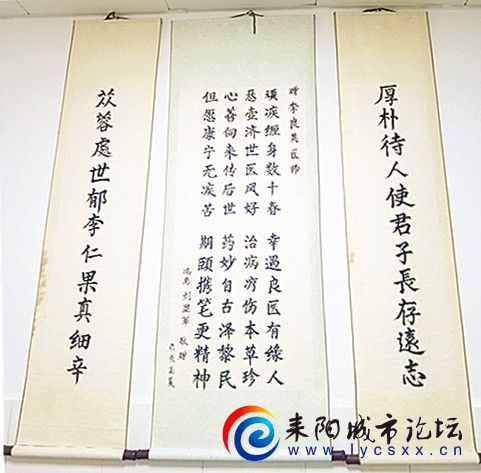 厚朴待人使君子長存遠志
赠李良英医师
顽疾缠身数十春 幸遇良医有缘人
悬壶济世医风好 治病疗伤本草珍
心善向来传后世 药妙自古泽黎民
但愿康宁无疾苦 期颐携笔更精神
刘盟军 敬赠
己亥孟夏
苁蓉處世郁李仁果真细辛
耒阳城市论坛
www.lycsxx.cn